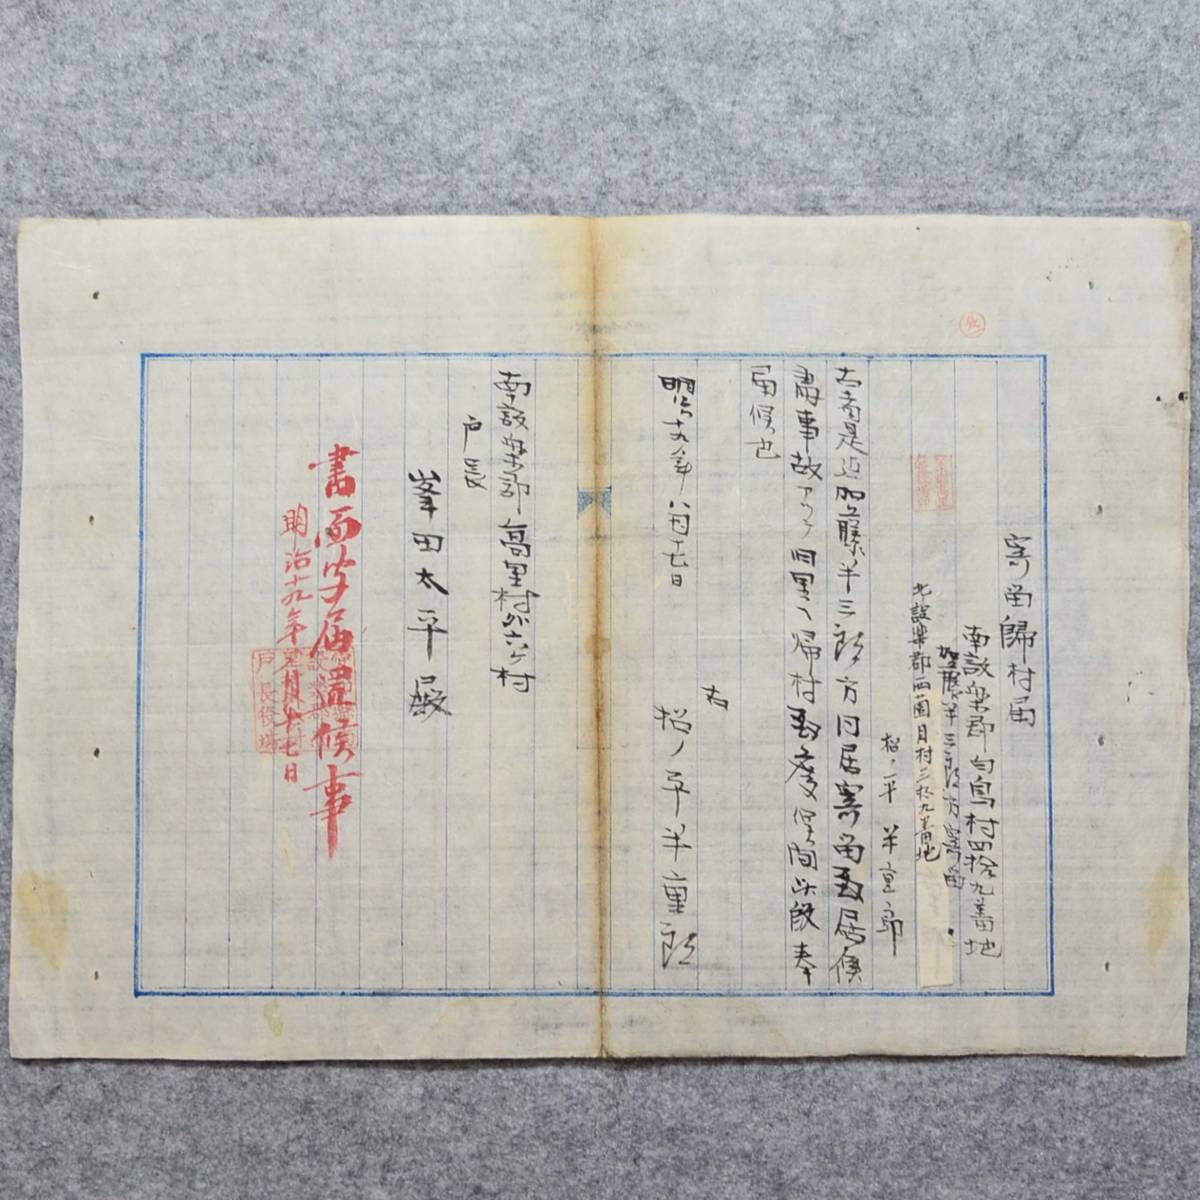 寄留歸村届
南設楽郡白鳥村四拾九番地
加藤半三郎方寄留
北設楽郡西薗目村三拾九番地
松ノ平半重郎
右者是迠加藤半三郎方同居寄留致居候
處事故アツテ四里へ帰村致度候間此段奉
届候也
明治十九年八月十七日
右
松ノ平半重郎
南設楽郡高里村外六ヶ村
戸長
峯田太平殿
書面之届置候事
明治十九年八月十七日
戸長役場